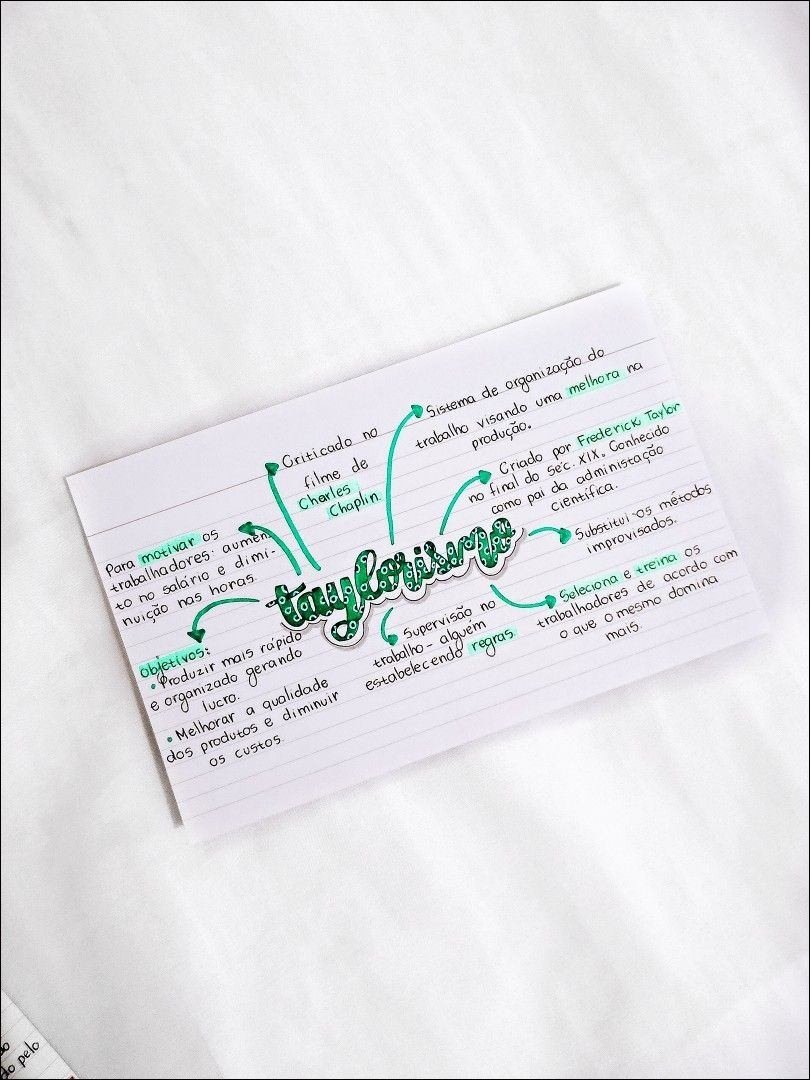 Sistema de organização do
trabalho visando uma melhora na
produção.
Criticado no
filme de
Charles
Chaplin
Criado por Frederick Taylor
no final do séc. XIX. Conhecido
como pai da administação
científica.
Para motivar os
trabalhadores: aumen
to no salário e dimi-
nuição nas horas.
taylorismo
Substitui os métodos
improvisados.
Seleciona e treina os
trabalhadores de acordo com
o que o mesmo domina
mais.
Supervisão no
trabalho - alguém
estabelecendo regras.
Objetivos:
• Produzir mais rápido
e organizado gerando
lucro.
• Melhorar a qualidade
dos produtos e diminuir
os custos.
pelo